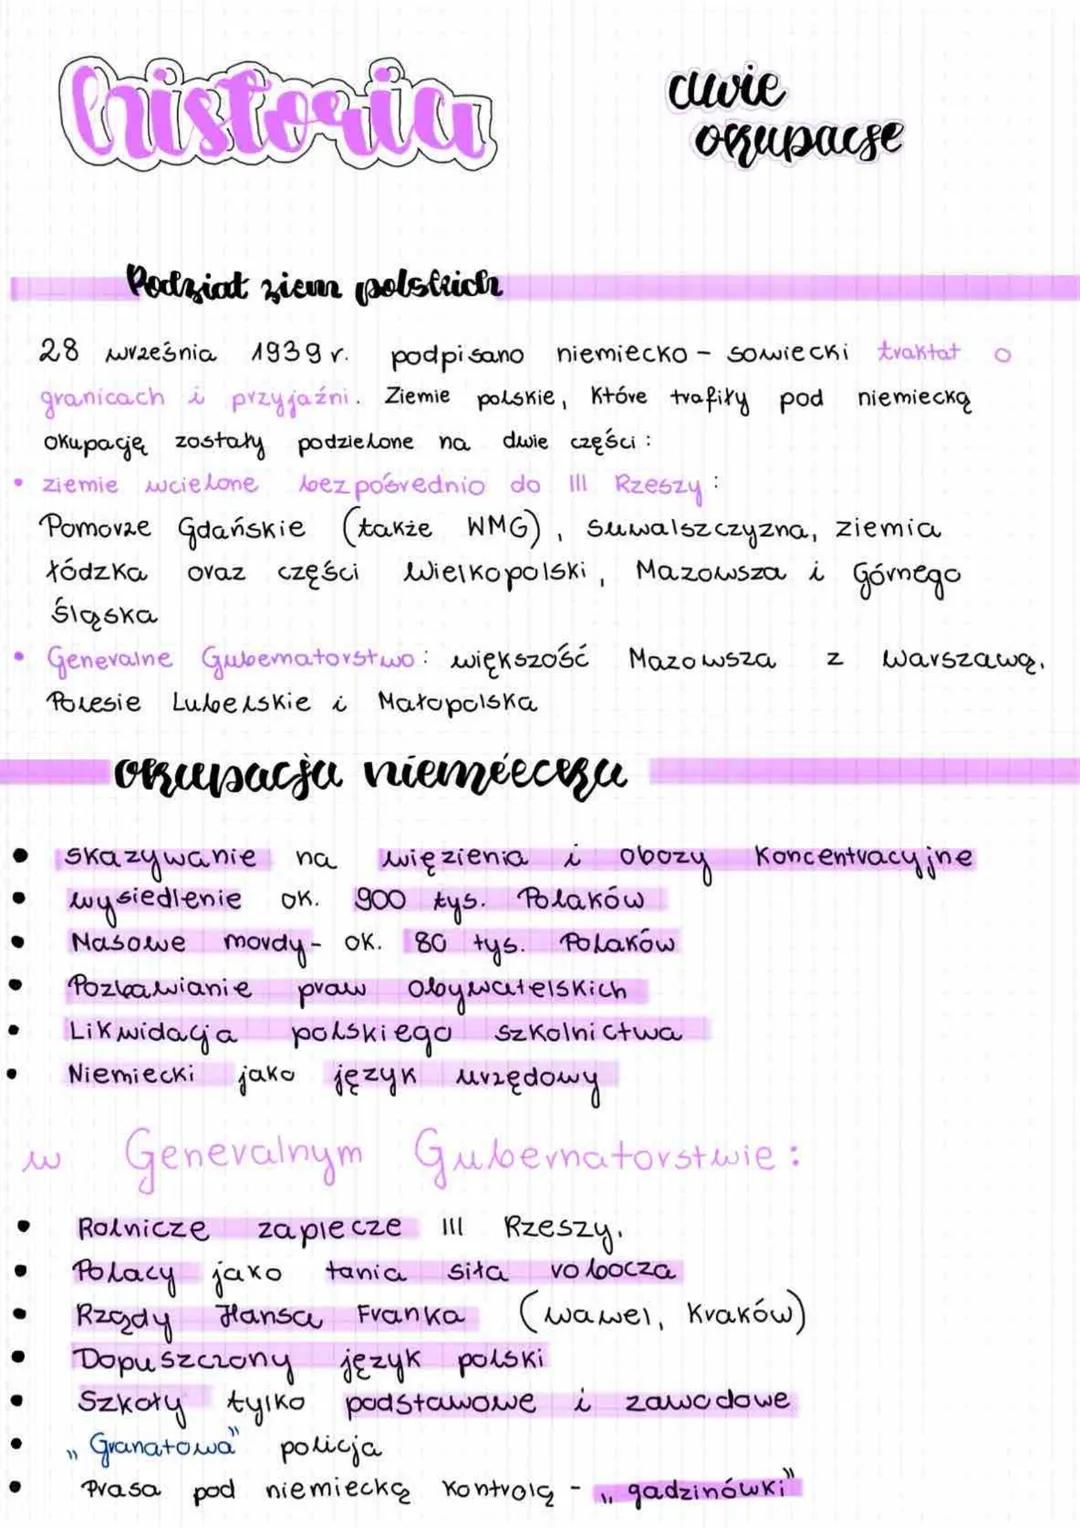 historia
dwie
okupacje
Podział ziem polskich
28 września 1939 r. podpisano niemiecko - sowiecki traktat o
granicach i przyjaźni. Ziemie polskie, które trafiły pod niemiecką
okupację zostały podzielone na dwie części:
• ziemie wcielone bezpośrednio do III Rzeszy:
Pomorze Gdańskie (także WMG), Suwalszczyzna, ziemia
łódzka oraz części Wielkopolski, Mazowsza i Górnego
Śląska
• Generalne Gubernatorstwo: większość Mazowsza z Warszawą.
Polesie Lubelskie i Małopolska
okupacja niemiecka
• skazywanie na więzienia i obozy koncentracyjne
• wysiedlenie ok. 900 tys. Polaków
• Masowe mordy - ok. 80 tys. Polaków
• Pozbawianie praw obywatelskich
• Likwidacja polskiego szkolnictwa
• Niemiecki jako język urzędowy
w Generalnym Gubernatorstwie:
• Rolnicze zaplecze III Rzeszy.
• Polacy jako tania siła robocza
• Rządy Hansa Franka (Wawel, Kraków)
• Dopuszczony język polski
• Szkoły tylko podstawowe i zawodowe
• „Granatowa" policja
• Prasa pod niemiecką kontrolą - „gadzinówki"